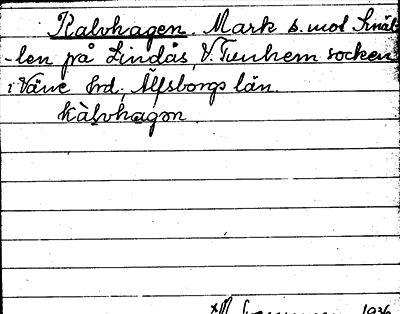 Kalvhagen. Mark s. mot Smäl-
-len på Lindås, V. Tunhem socken
i Väne hrd, Älfsborgs län.
kàlvhagən
1936